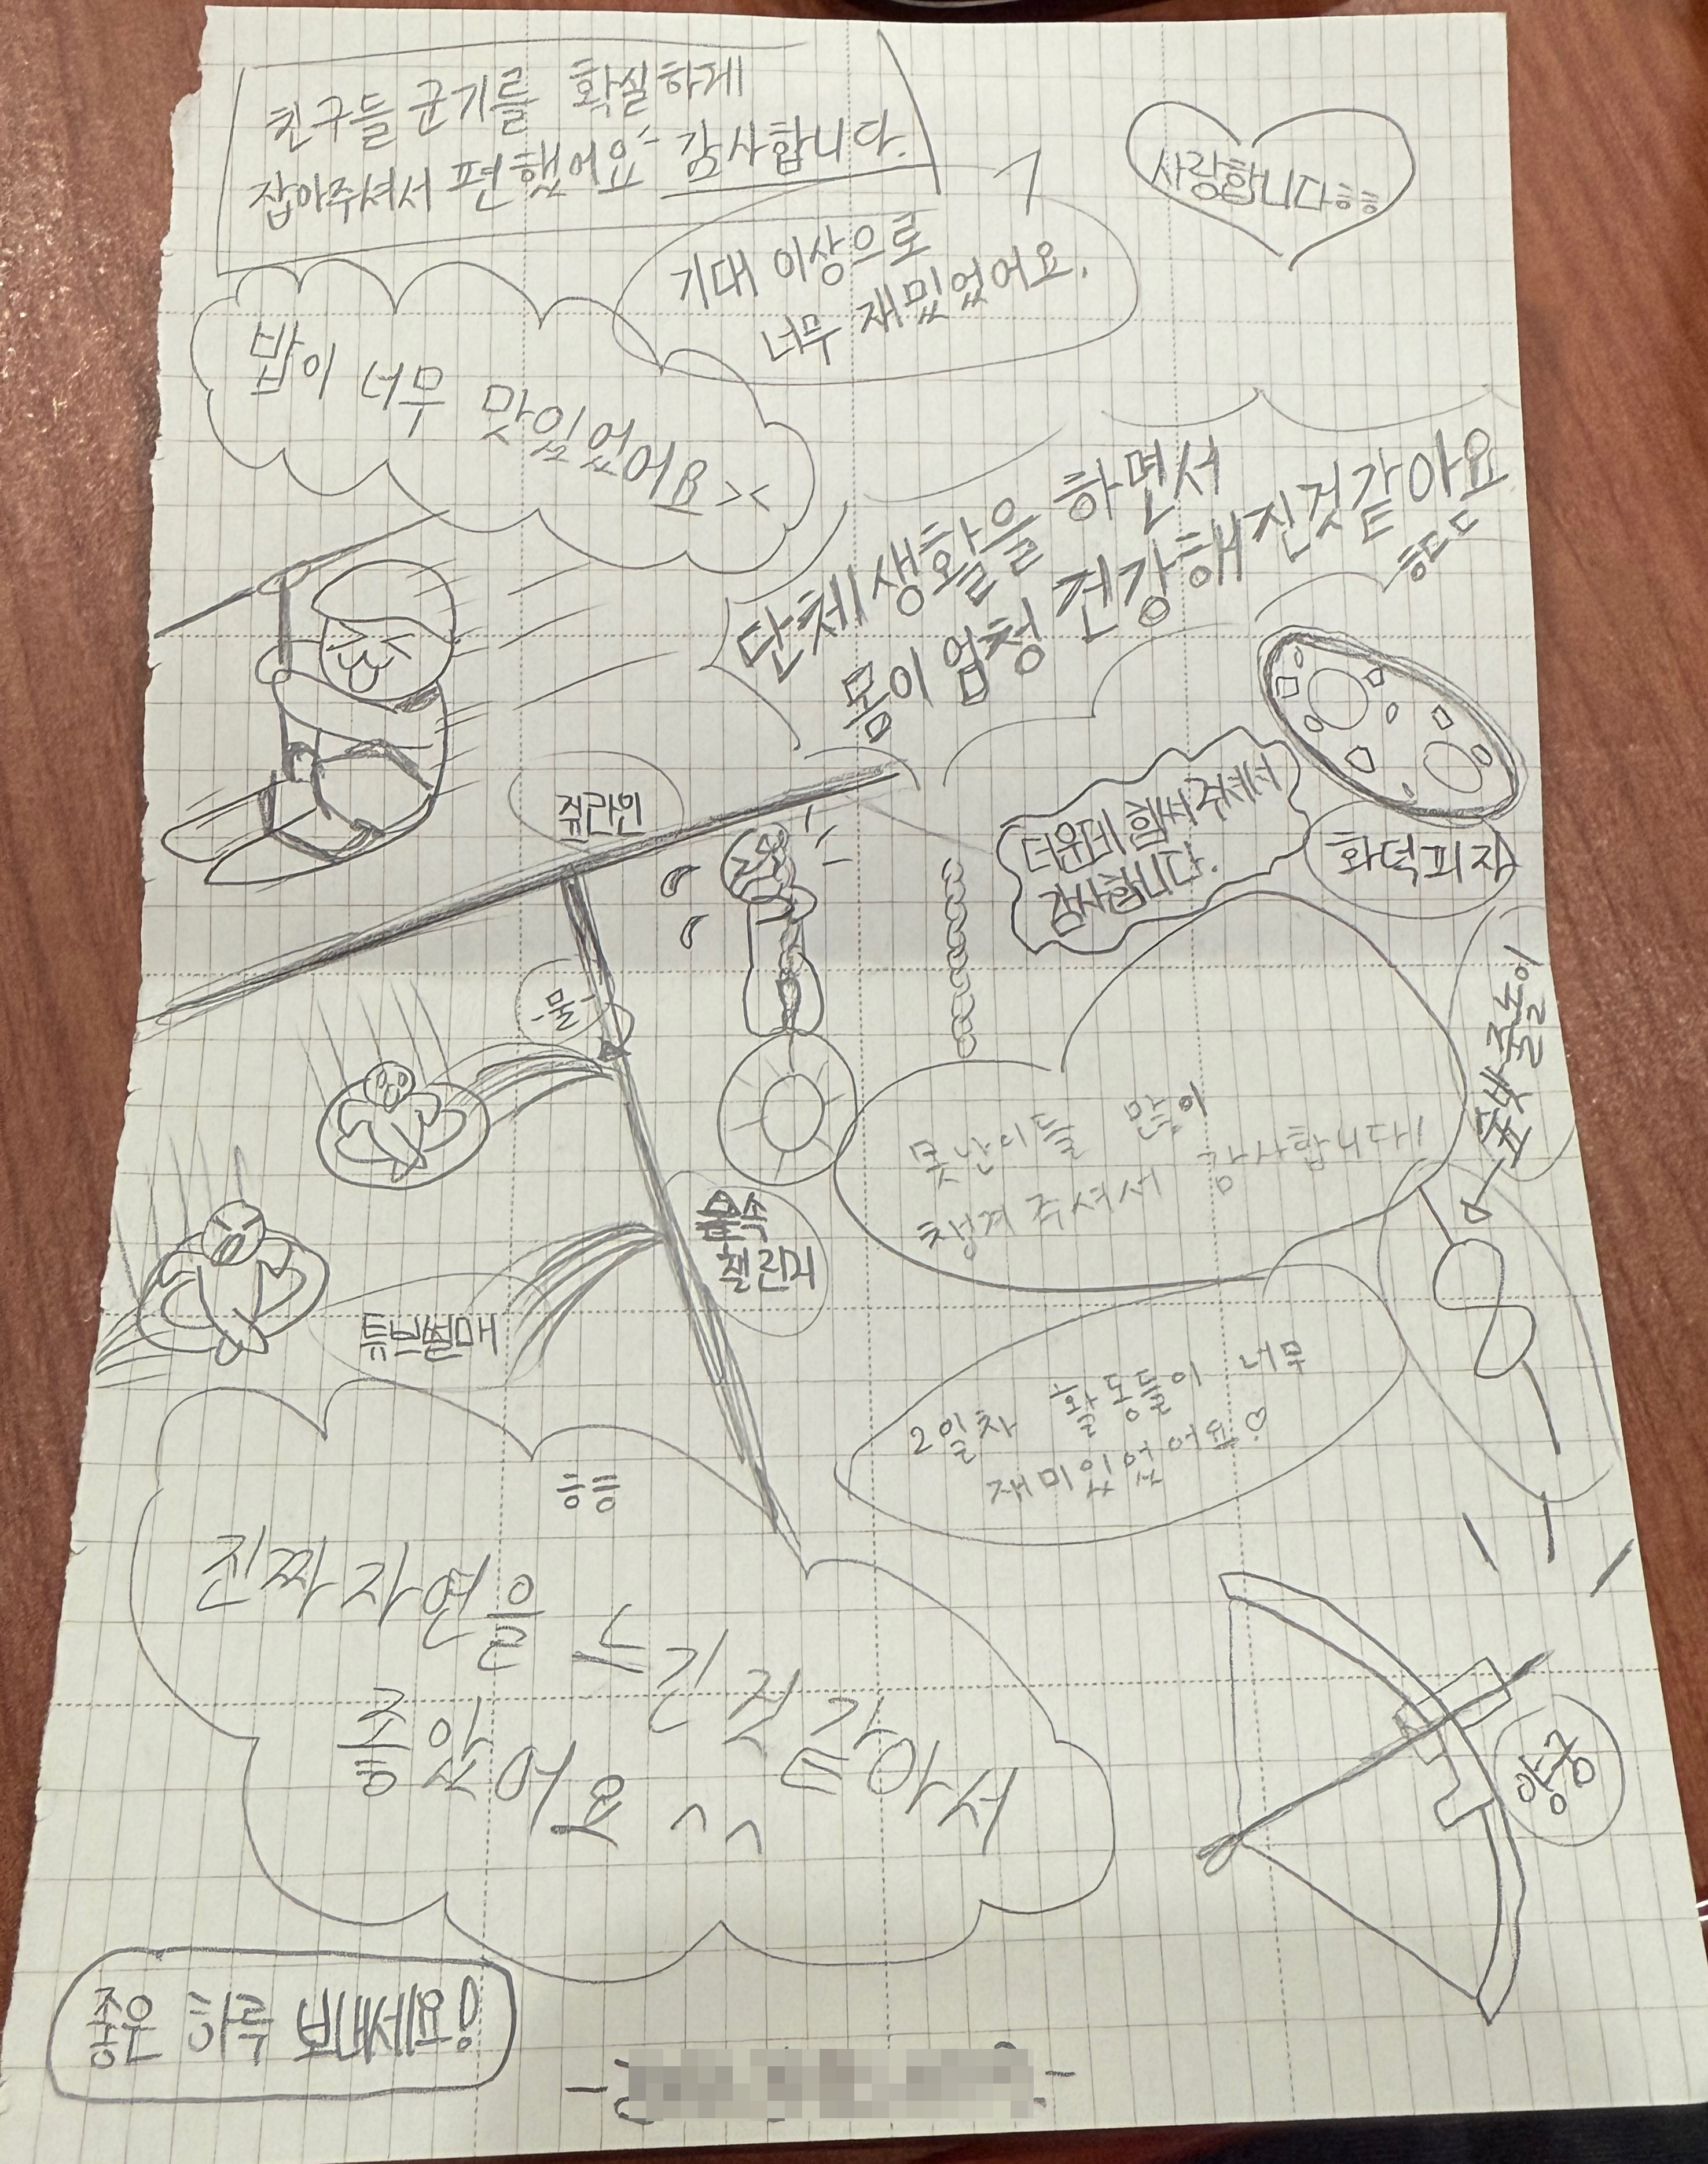 친구들 군기를 확실하게
잡아주셔서 편했어요~ 감사합니다.
사랑합니다ㅎㅎ
기대 이상으로
너무 재밌었어요.
밥이 너무 맛있었어요 ><
단체생활을 하면서
몸이 엄청 건강해진것같아요
ㅎㄷㄷ
쥐라인
더운데 힘써주셔서
감사합니다.
화덕피자
물
줄놀이
못난이들 많이
챙겨주셔서 감사합니다!
물속
챌린지
튜브썰매
2일차 활동들이 너무
재미있었어요♡
ㅎㅎ
진짜자연을 느낀것같아서
좋았어요 ^^
양궁
좋은 하루 보내세요!